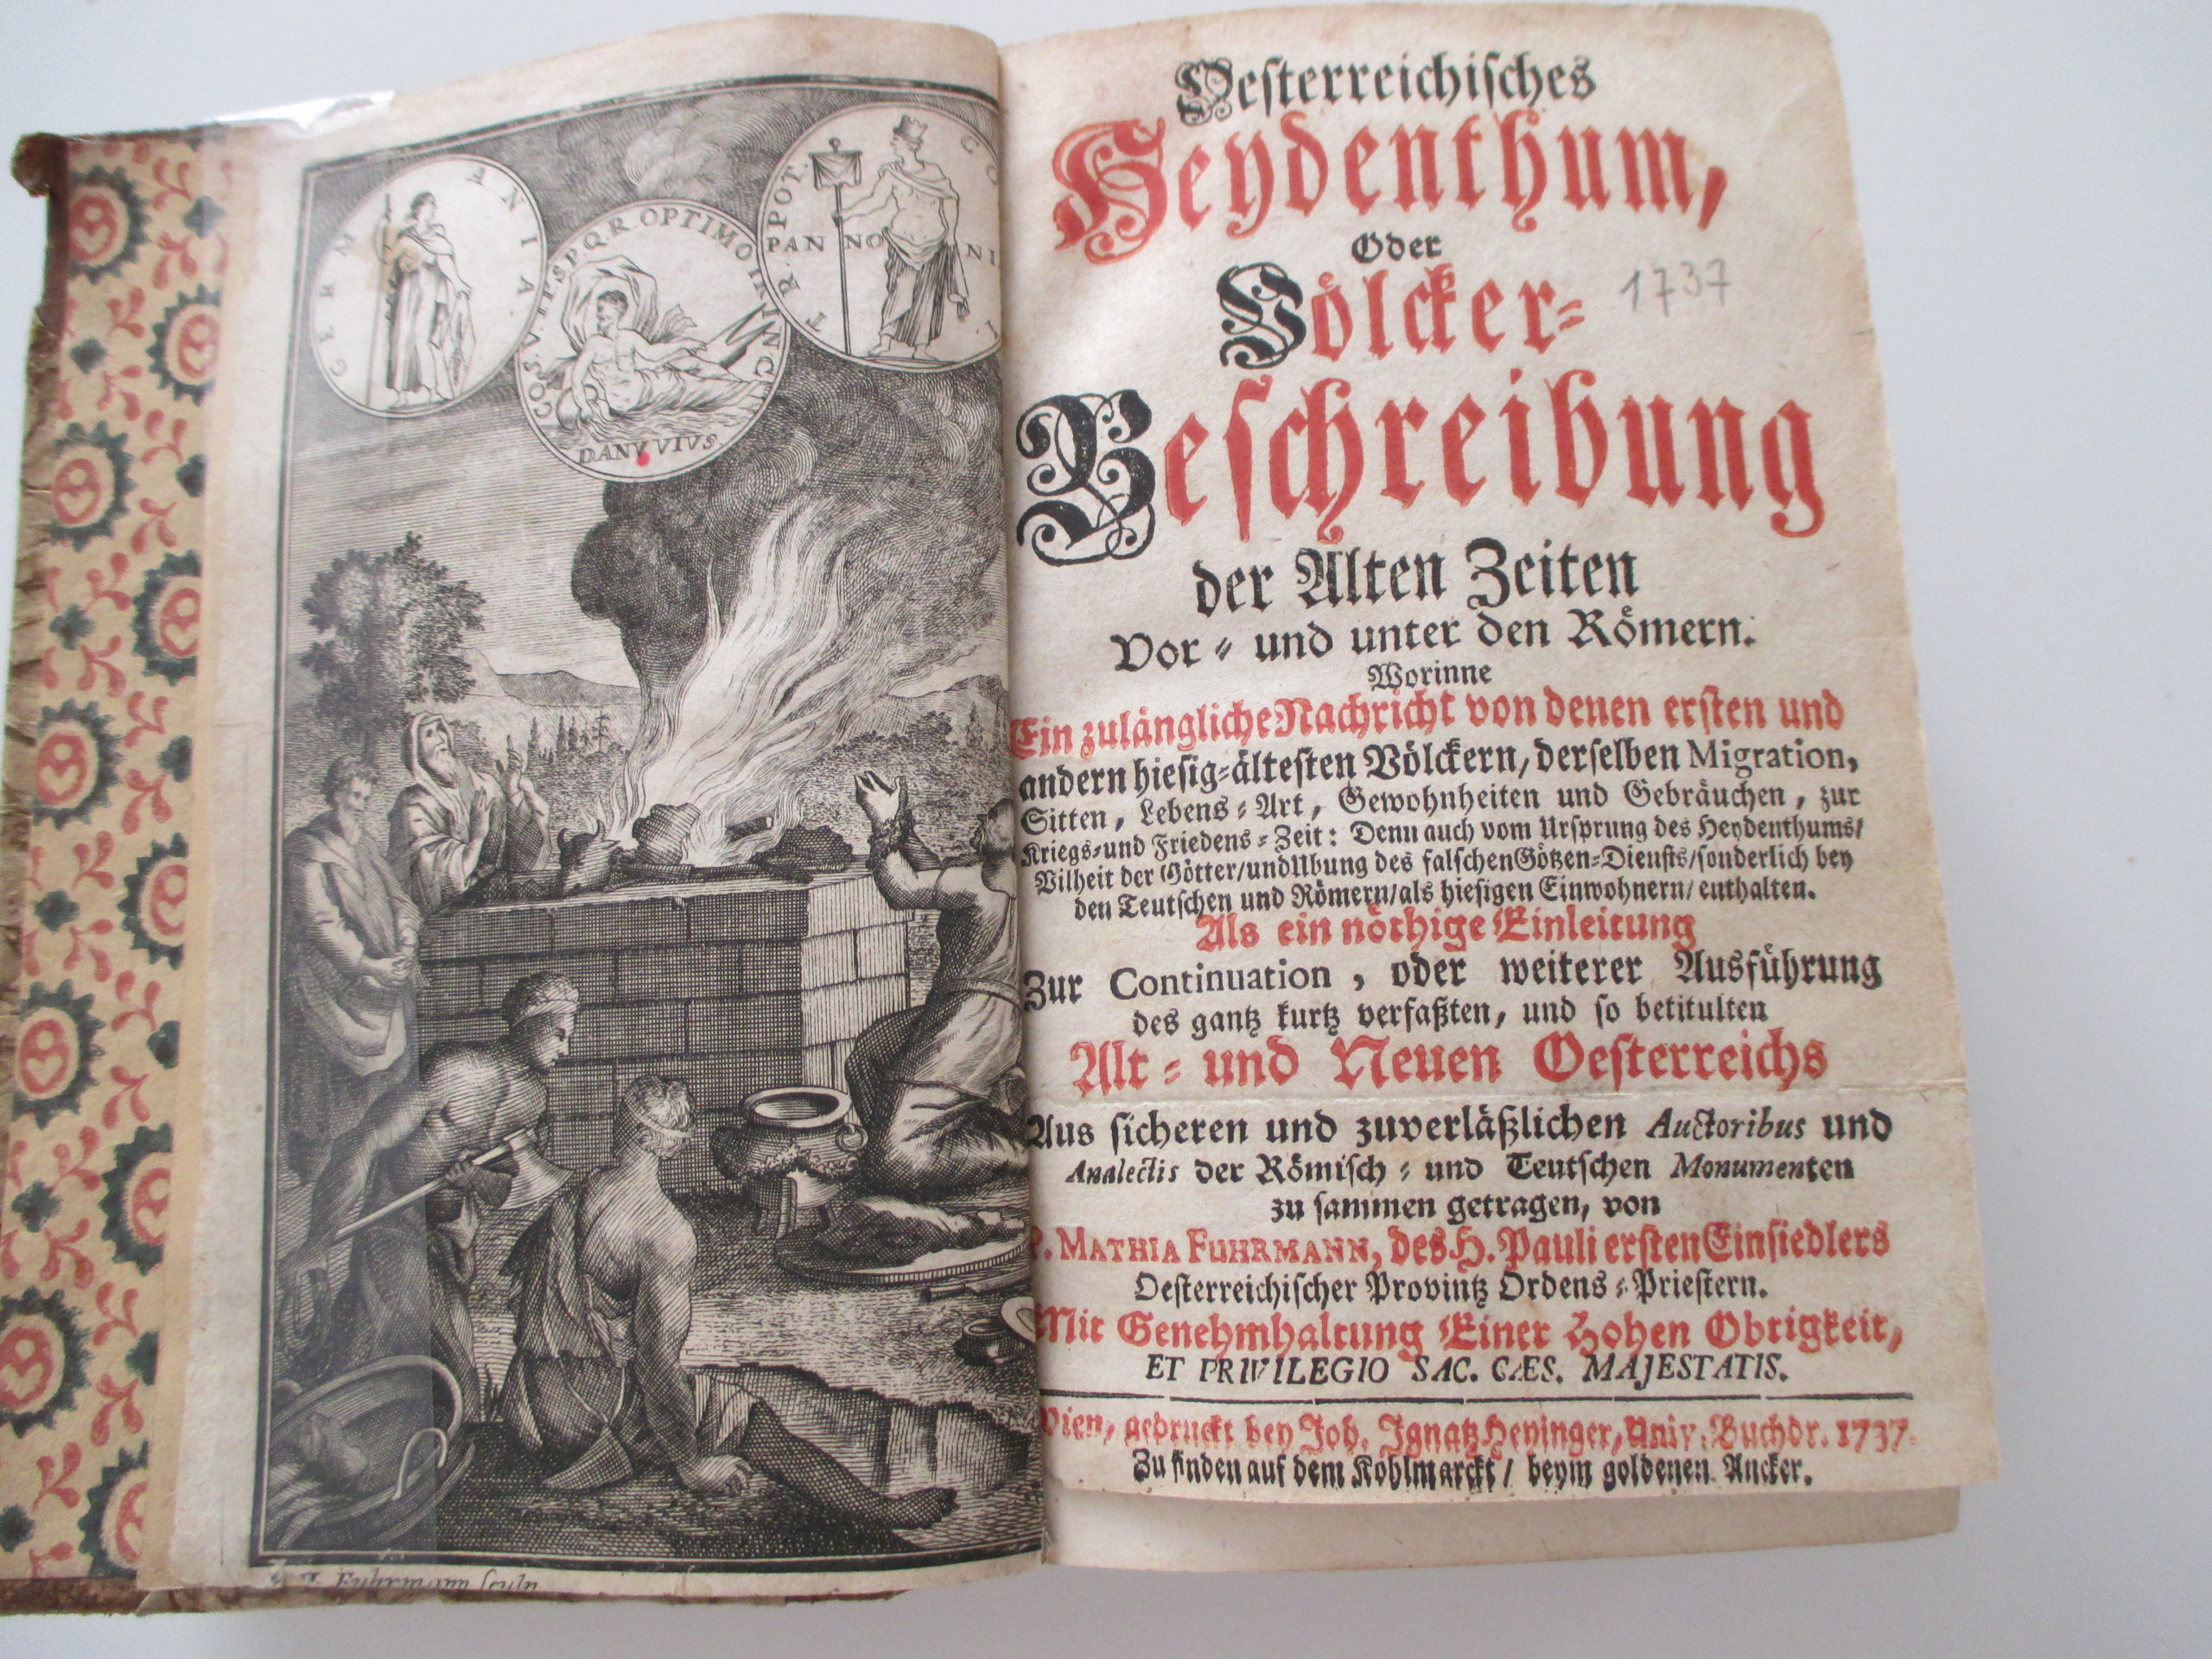 GERMANIA
COS. V. PP. SPQR. OPTIMO PRINCI
DANVVIVS
TR. POT. CO
PANNONI
Fuhrmann sculp
Oesterreichisches
Heydenthum,
Oder
Völcker=
1737
Beschreibung
der Alten Zeiten
Vor = und unter den Römern.
Worinne
Ein zulängliche Nachricht von denen ersten und
andern hiesig=ältesten Völckern, derselben Migration,
Sitten, Lebens=Art, Gewohnheiten und Gebräuchen, zur
Kriegs=und Friedens=Zeit: Denn auch vom Ursprung des Heydenthums/
Vilheit der Götter/und Ubung des falschen Götzen=Diensts/sonderlich bey
den Teutschen und Römern/als hiesigen Einwohnern/ enthalten.
Als ein nöthige Einleitung
Zur Continuation, oder weiterer Ausführung
des gantz kurtz verfaßten, und so betitulten
Alt = und Neuen Oesterreichs
Aus sicheren und zuverläßlichen Auctoribus und
Analectis der Römisch = und Teutschen Monumenten
zu sammen getragen, von
P. MATHIA FUHRMANN, des H. Pauli ersten Einsiedlers
Oesterreichischer Provintz Ordens=Priestern.
Mit Genehmhaltung Einer Hohen Obrigkeit,
ET PRIVILEGIO SAC. CÆS. MAJESTATIS.
Wien, gedruckt bey Joh. Ignatz Heyinger, Univ. Buchdr. 1737.
Zu finden auf dem Kohlmarckt / beym goldenen Ancker.